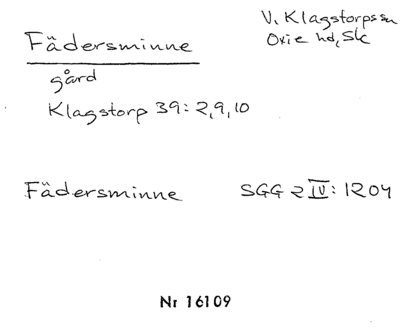 Fädersminne
V. Klagstorps sn
Oxie hd, Sk
gård
Klagstorp 39: 2, 9, 10
Fädersminne SGG 2 IV: 1204
Nr 16109